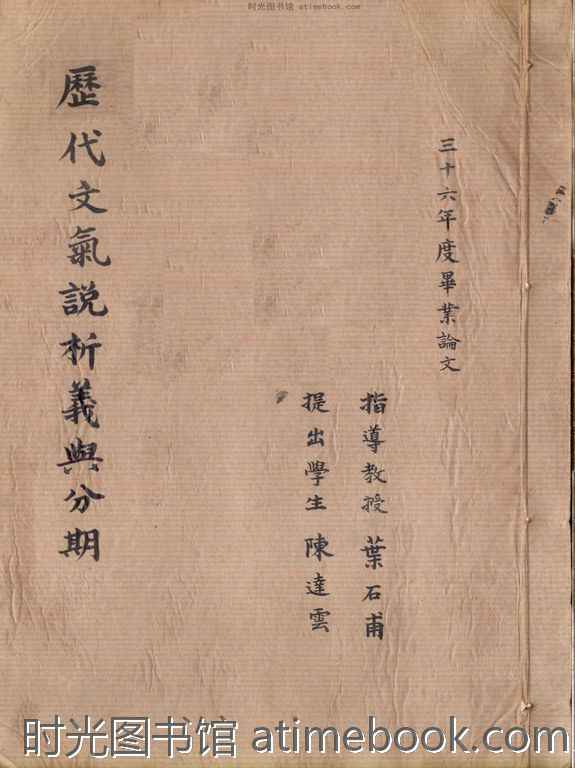 时光图书馆 atimebook.com
三十六年度畢業論文
指導教授 葉石甫
提出學生 陳達雲
歷代文氣説析義與分期
时光图书馆 atimebook.com